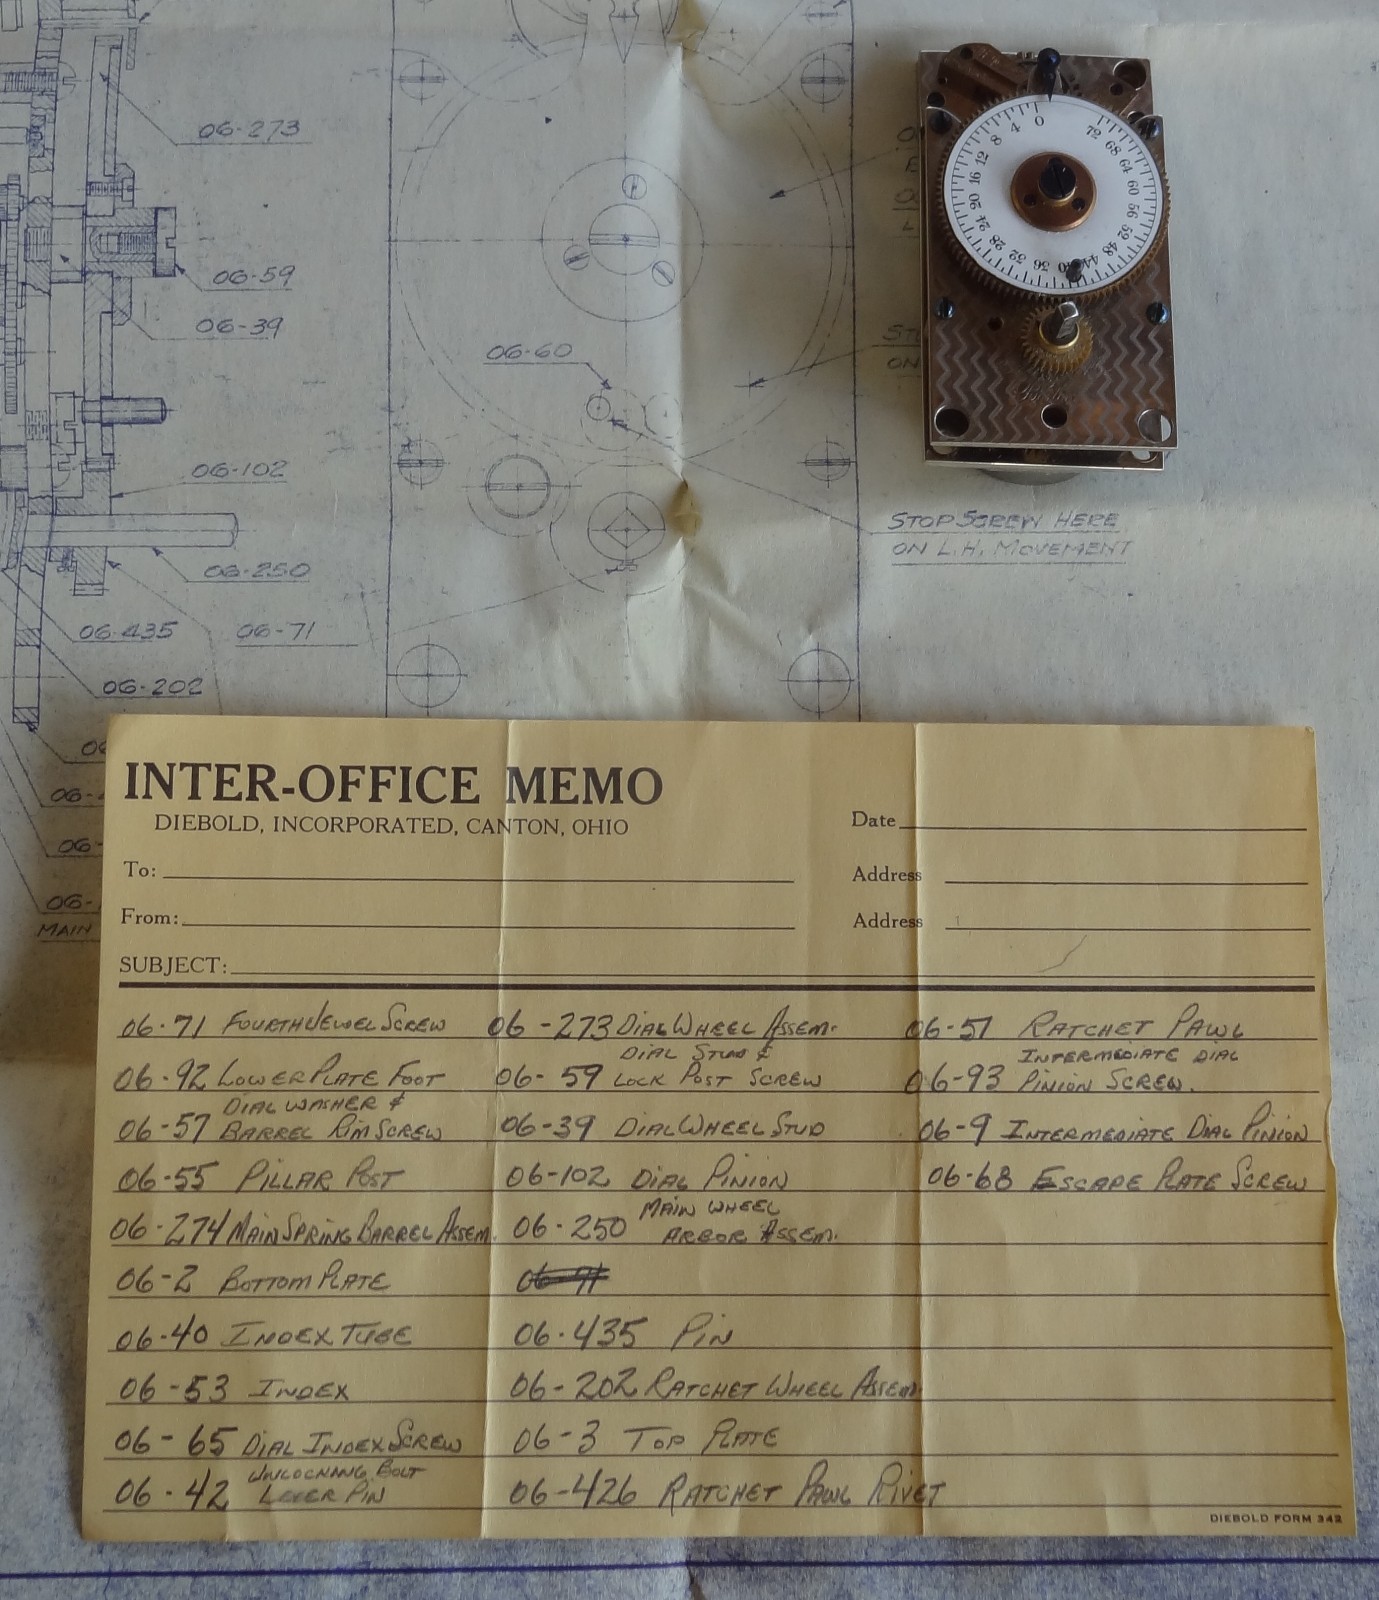 06-273
06-59
06-39
06-60
06-102
06-250
06-435
06-71
06-202
STOP SCREW HERE
ON L.H. MOVEMENT
ON
MAIN
0 4 8 12 16 20 24 28 32 36 40 44 48 52 56 60 64 68 72
INTER-OFFICE MEMO
DIEBOLD, INCORPORATED, CANTON, OHIO
Date
To:
Address
From:
Address
SUBJECT:
06-71 FOURTH JEWEL SCREW
06-92 LOWER PLATE FOOT
DIAL WASHER &
06-57 BARREL RIM SCREW
06-55 PILLAR POST
06-274 MAIN SPRING BARREL ASSEM.
06-2 BOTTOM PLATE
06-40 INDEX TUBE
06-53 INDEX
06-65 DIAL INDEX SCREW
UNLOCKING BOLT
06-42 LEVER PIN
06-273 DIAL WHEEL ASSEM.
DIAL STUD &
06-59 LOCK POST SCREW
06-39 DIAL WHEEL STUD
06-102 DIAL PINION
MAIN WHEEL
06-250 ARBOR ASSEM.
06-435 PIN
06-202 RATCHET WHEEL ASSEM.
06-3 TOP PLATE
06-426 RATCHET PAWL RIVET
06-51 RATCHET PAWL
INTERMEDIATE DIAL
06-93 PINION SCREW.
06-9 INTERMEDIATE DIAL PINION
06-68 ESCAPE PLATE SCREW
DIEBOLD FORM 342